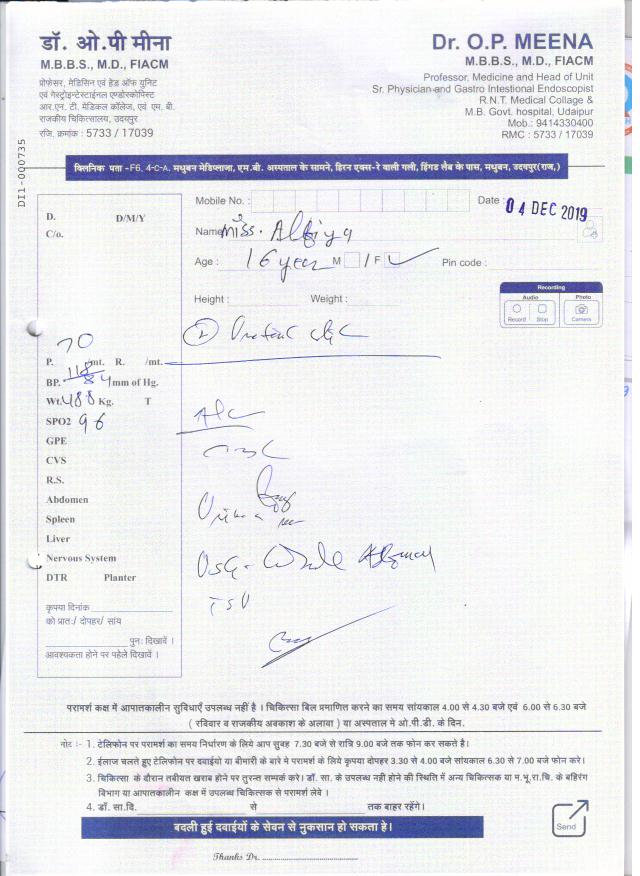 डॉ. ओ.पी मीना
M.B.B.S., M.D., FIACM
प्रोफेसर, मेडिसिन एवं हेड ऑफ यूनिट
एवं गेस्ट्रोइन्टेस्टाईनल एण्डोस्कोपिस्ट
आर.एन.टी. मेडिकल कॉलेज, एवं एम. बी.
राजकीय चिकित्सालय, उदयपुर
रजि. क्रमांक : 5733 / 17039
Dr. O.P. MEENA
M.B.B.S., M.D., FIACM
Professor, Medicine and Head of Unit
Sr. Physician and Gastro Intestional Endoscopist
R.N.T. Medical Collage &
M.B. Govt. hospital, Udaipur
Mob.: 9414330400
RMC : 5733 / 17039
DI1-000735
क्लिनिक पता -F6, 4-C-A, मधुबन मेडिप्लाजा, एम.बी. अस्पताल के सामने, हिरन एक्स-रे वाली गली, हिंगड लैब के पास, मधुबन, उदयपुर(राज,)
Mobile No. :
Date : 04 DEC 2019
D. D/M/Y
C/o.
Name Miss.
Age : 16 year M / F ✓ Pin code :
Height : Weight :
Recording
Audio Photo
Record Stop Camera
70
P. /mt. R. /mt.
BP. 118/84 mm of Hg.
Wt. Kg. T
SPO2 96
GPE
CVS
R.S.
Abdomen
Spleen
Liver
Nervous System
DTR Planter
कृपया दिनांक
को प्रातः/ दोपहर/ सांय
पुनः दिखावें ।
आवश्यकता होने पर पहेले दिखावें ।
Urine
USG - Whole
परामर्श कक्ष में आपातकालीन सुविधाएँ उपलब्ध नहीं है । चिकित्सा बिल प्रमाणित करने का समय सांयकाल 4.00 से 4.30 बजे एवं 6.00 से 6.30 बजे
( रविवार व राजकीय अवकाश के अलावा ) या अस्पताल मे ओ.पी.डी. के दिन.
नोट :- 1. टेलिफोन पर परामर्श का समय निर्धारण के लिये आप सुबह 7.30 बजे से रात्रि 9.00 बजे तक फोन कर सकते है।
2. ईलाज चलते हुए टेलिफोन पर दवाईयो या बीमारी के बारे मे परामर्श के लिये कृपया दोपहर 3.30 से 4.00 बजे सांयकाल 6.30 से 7.00 बजे फोन करे।
3. चिकित्सा के दौरान तबीयत खराब होने पर तुरन्त सम्पर्क करे। डॉ. सा. के उपलब्ध नहीं होने की स्थिति में अन्य चिकित्सक या म.भू.रा.चि. के बहिरंग
विभाग या आपातकालीन कक्ष में उपलब्ध चिकित्सक से परामर्श लेवे ।
4. डॉ. सा.दि. से तक बाहर रहेंगे।
बदली हुई दवाईयों के सेवन से नुकसान हो सकता हे।
Send
Thanks Dr.